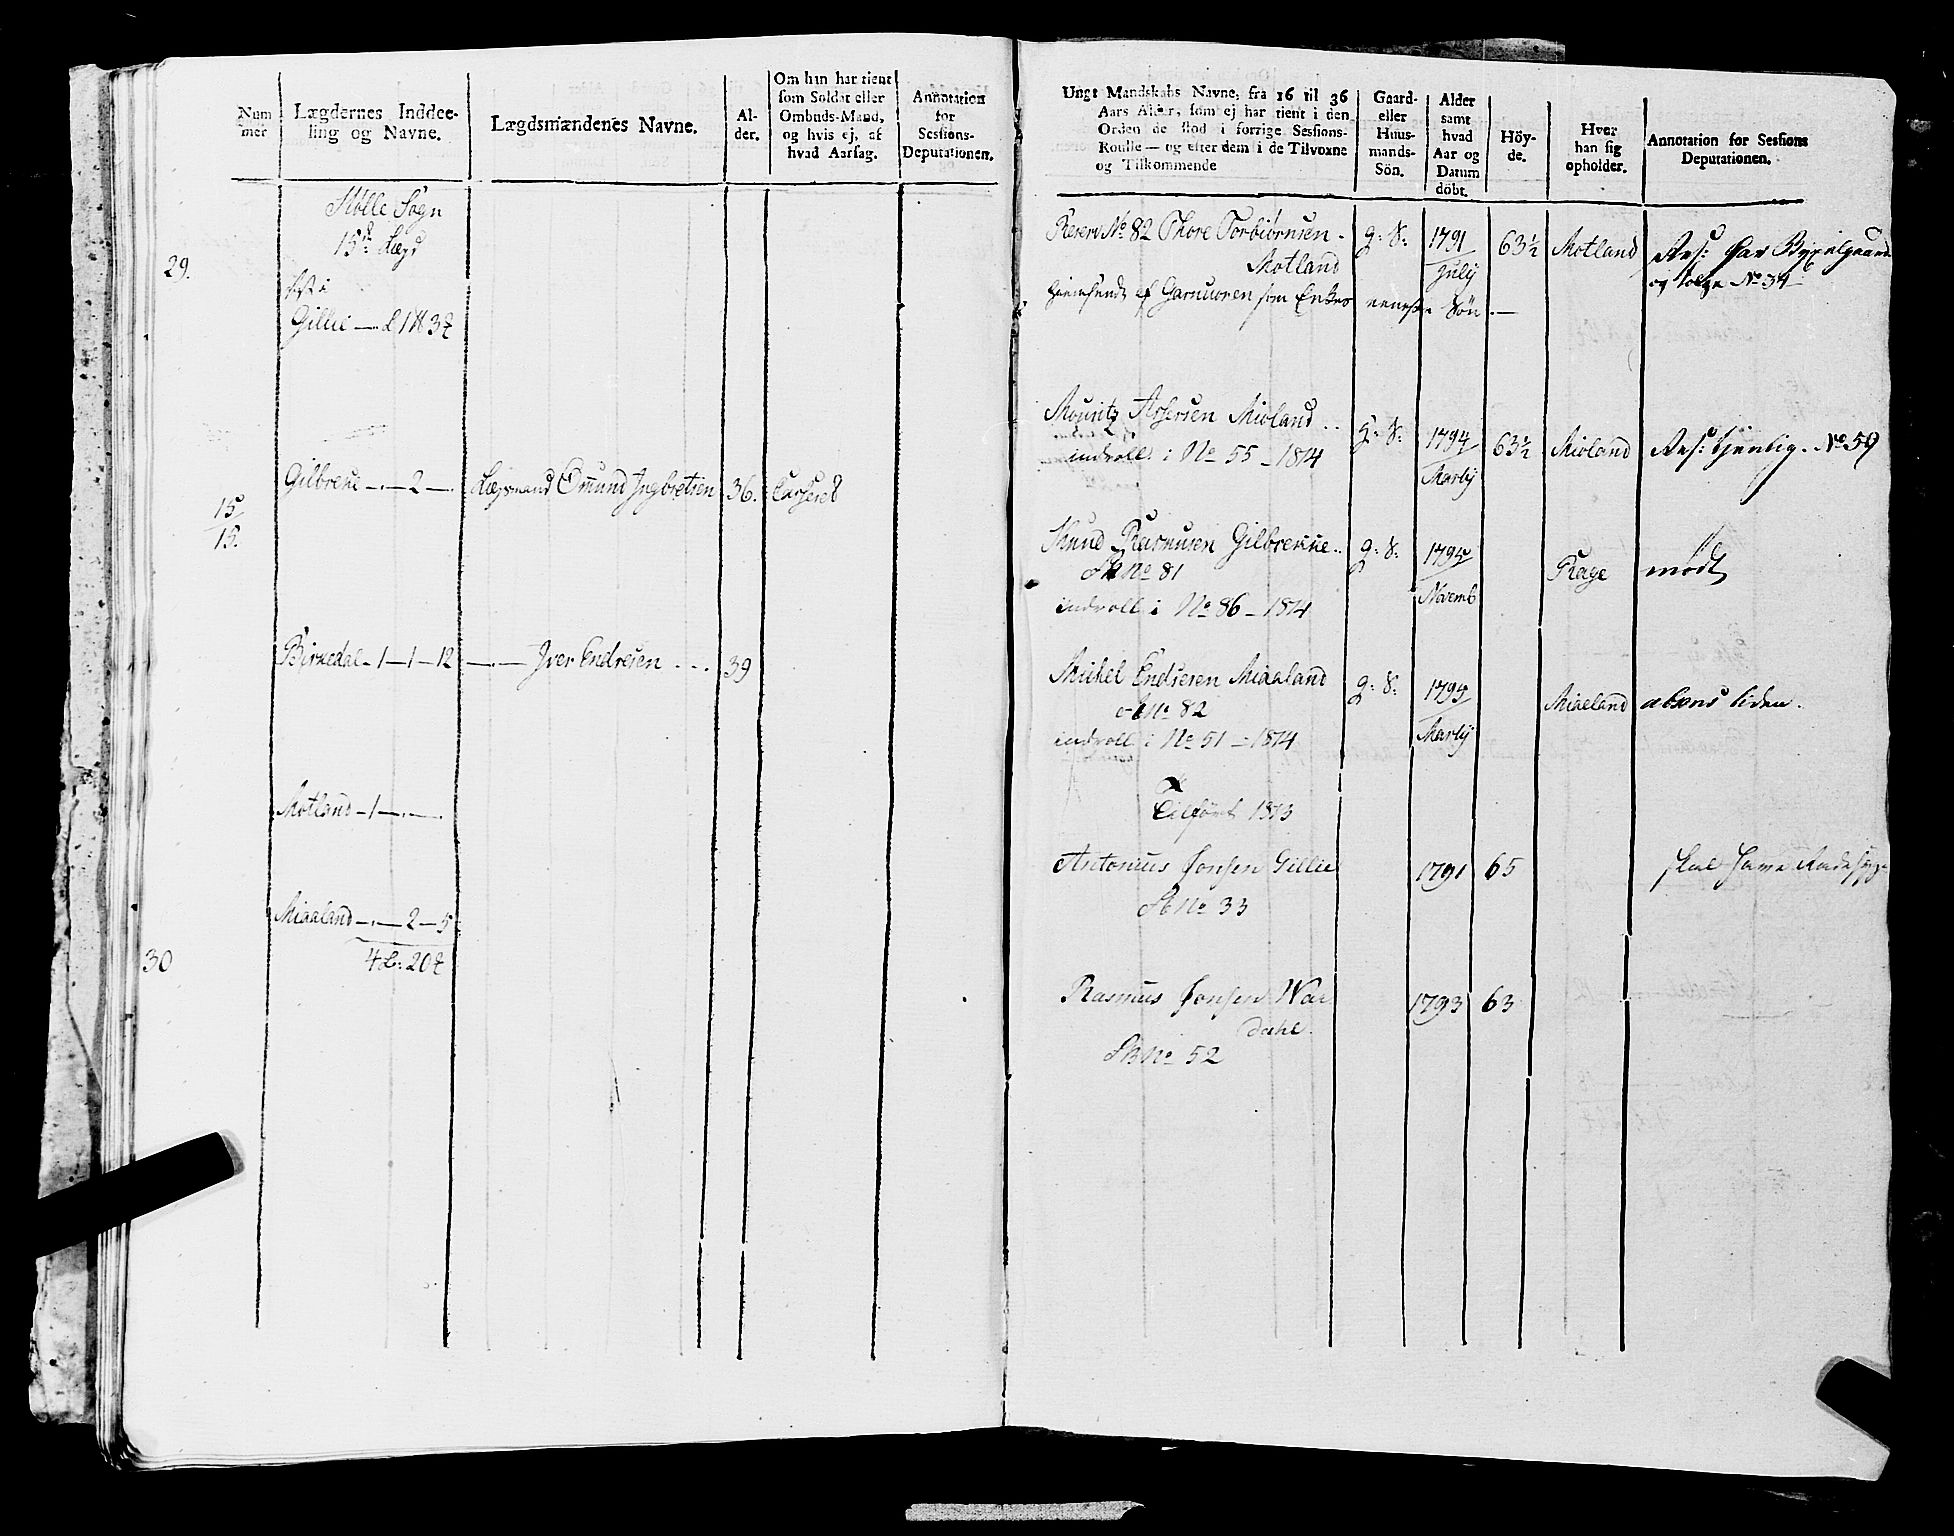 Num
mer
Lægdernes Inddee-
ling og Navne.
Lægdsmændenes Navne.
Al-
der.
Om han har tient
som Soldat eller
Ombuds-Mand,
og hvis ej, af
hvad Aarsag.
Annotation
for
Sessions-
Deputationen.
29.
Sogn
15de Lægd
Gillie
15
15.
Gilbreke —.— 2 —.
Omund Ingbretsen
36.
Casseret
Birkedal - 1 — 1 — 12
—.— Iver Endresen
39
Motland - 1 —.—
Miaaland —.— 2 — 5
30
Ungt Mandskabs Navne, fra 16 til 36
Aars Alder, som ej har tient i den
Orden de stod i forrige Sessions-
Roulle — og efter dem i de Tilvoxne
og Tilkommende
Gaard-
eller
Huus-
mands-
Sön.
Alder
samt
hvad
Aar og
Datum
döbt.
Höy-
de.
Hver
han sig
opholder.
Annotation for Sessions
Deputationen.
Reserv No 82 Thore Torbiørnsen
Motland
g: S:
1791
July
63½
Motland
og No 34
som Enkes eneste Søn.
Mouritz Assersen Mioland
indroll: i No 55 - 1814
g: S:
1794
Martij
63½
Mioland
No 59
Knud Rasmusen Gilbrekke
No 81
indroll i No 86 - 1814
g: S:
1795
Novemb
Rege
mødt
Michel Endresen Miaaland
No 82
indroll i No 51 - 1814
g: S:
1794
Martij
Miaeland
Tilført 1813
Antonius Jonsen Gillie
No 33
1791
65
skal have
Rasmus Jonsen War
dahl.
No 52
1793
63